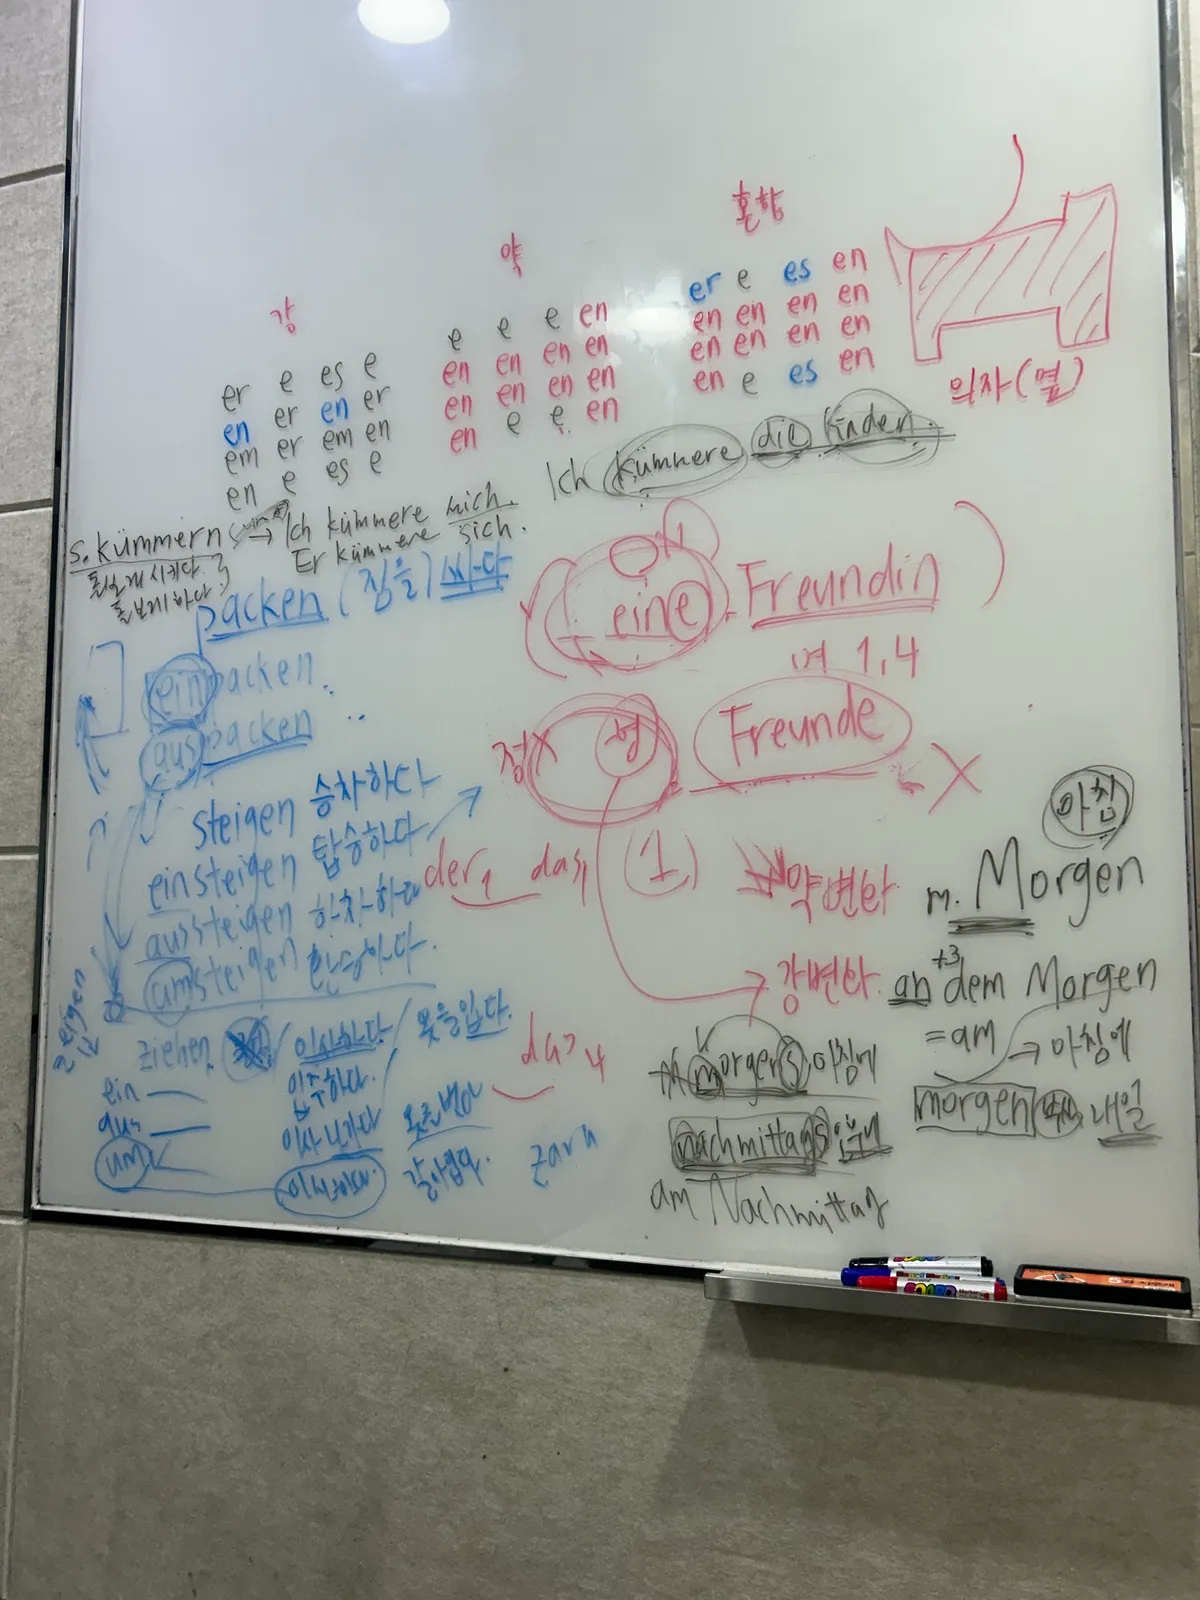 강
er e es e
en er en er
em er em en
en e es e
약
e e e en
en en en en
en en en en
en e e en
혼합
er e es en
en en en en
en en en en
en e es en
의자(옆)
Ich kümmere die Kinden.
s. kümmern
→ Ich kümmere mich.
Er kümmere sich.
돌보게 하다
packen (짐을) 싸다
einpacken
auspacken
steigen 승차하다
einsteigen 탑승하다
aussteigen 하차하다
umsteigen 환승하다.
ziehen 이사하다 옷을 입다.
ein 입주하다.
aus 이사 나가다
um 갈아입다.
zara
eine Freundin
여 1,4
정X 형 Freunde
X
der1 das1 (1)
약변화
강변화
das4
아침
m. Morgen
an +3 dem Morgen
= am → 아침에
morgen 부사 내일
morgens 아침에
nachmittags 오후에
am Nachmittag